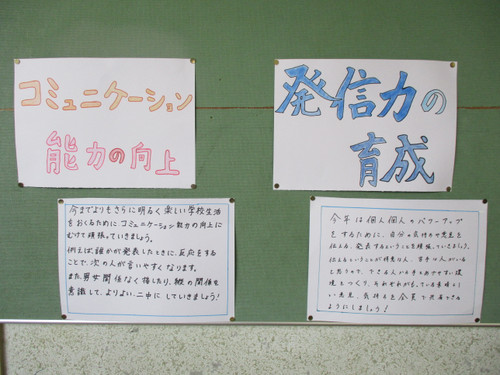 コミュニケーション
能力の向上
発信力の
育成
今までよりもさらに明るく楽しい学校生活
をおくるために、コミュニケーション能力の向上に
むけて頑張っていきましょう。
例えば、誰かが発表したときに、反応をする
ことで、次の人が言いやすくなります。
また、男女関係なく接したり、縦の関係を
意識して、よりよい二中にしていきましょう!
今年は個人個人のパワーアップ
をするために、自分の気持ちや意見を
伝える、発表するということを頑張っていきましょう。
伝えるということが得意な人、苦手な人がいる
と思うので、できる人も手をあげやすい環
境をつくり、それぞれがもっている素晴らし
い意見、気持ちを全員で共有できる
ようにしましょう!